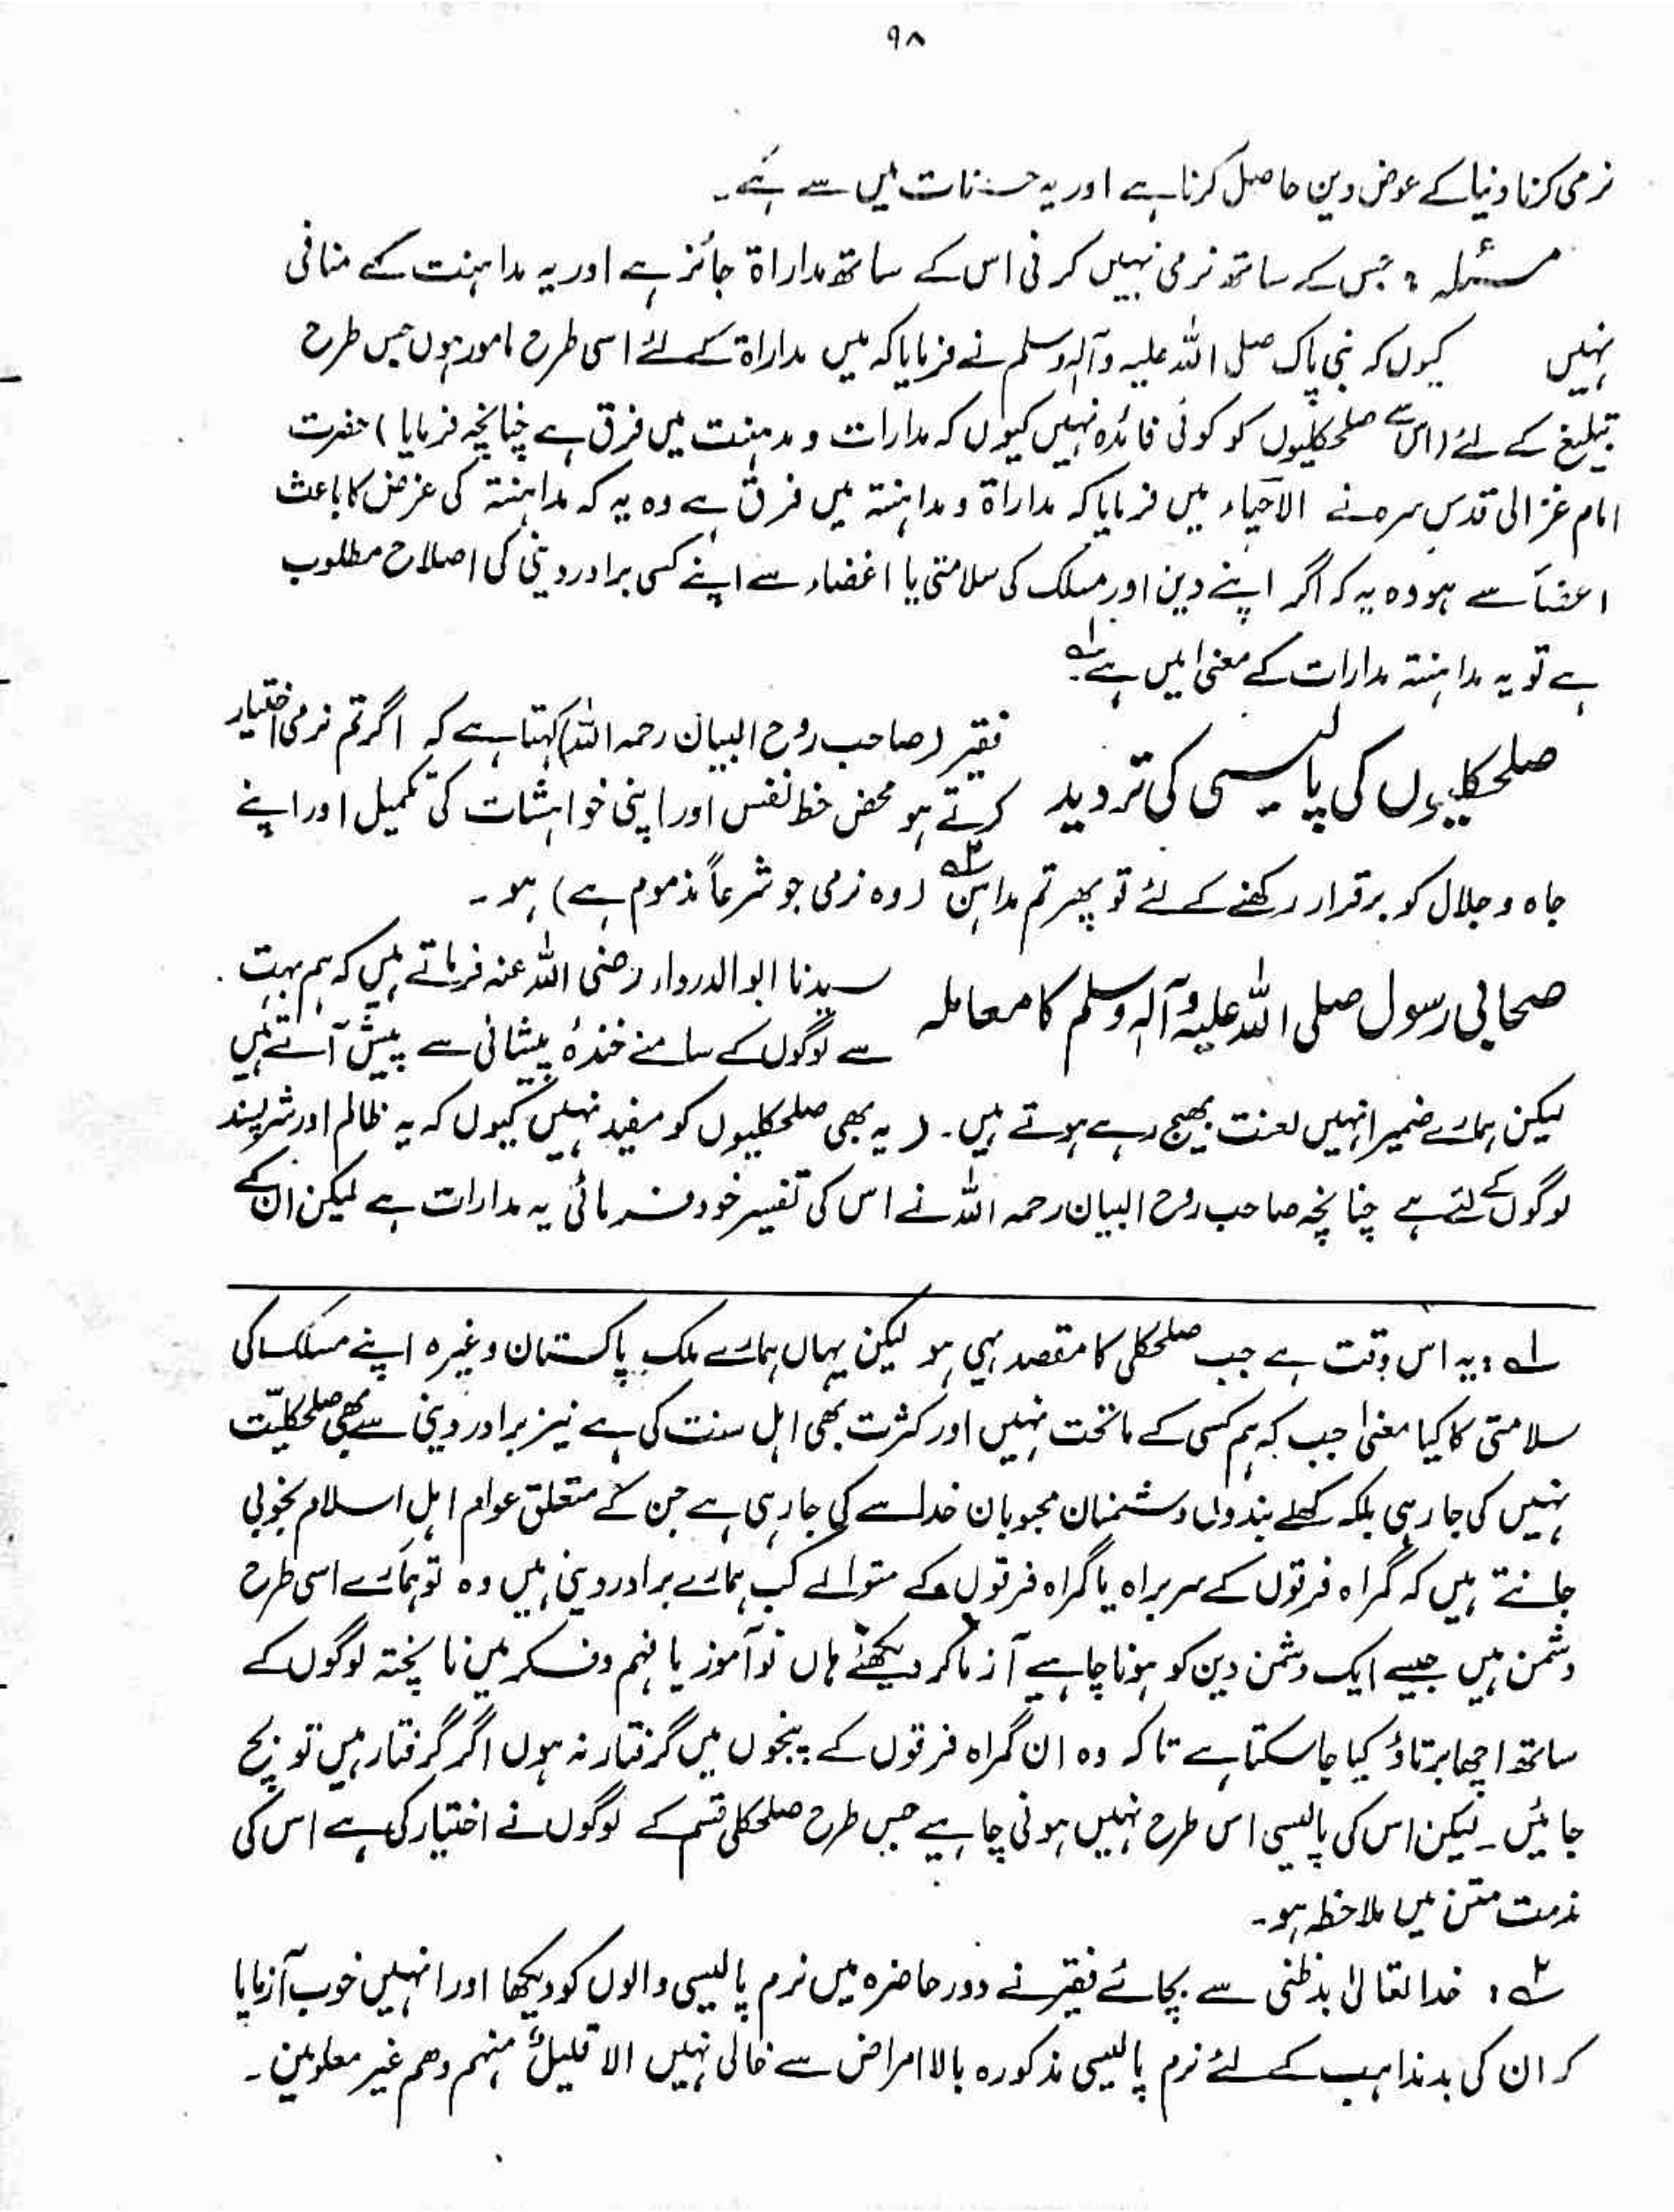 ۹۸
نرمی کرنا دنیا کے عوض دین حاصل کرنا ہے اور یہ حسنات میں سے ہے۔
مسئلہ : جس کے ساتھ نرمی نہیں کرنی اس کے ساتھ مداراۃ جائز ہے اور یہ مداہنت کے منافی
نہیں کیوں کہ نبی پاک صلی اللہ علیہ وآلہ وسلم نے فرمایا کہ میں مداراۃ کے لئے اسی طرح مامور ہوں جس طرح
تبلیغ کے لئے (اس سے صلحکلیوں کو کوئی فائدہ نہیں کیوں کہ مدارات و مدہنت میں فرق ہے چنانچہ فرمایا) حضرت
امام غزالی قدس سرہ نے الاحیاء میں فرمایا کہ مداراۃ و مداہنتہ میں فرق ہے وہ یہ کہ مداہنتہ کی غرض کا باعث
اعضاً سے ہو وہ یہ کہ اگر اپنے دین اور مسلک کی سلامتی یا اغضاء سے اپنے کسی برادر دینی کی اصلاح مطلوب
ہے تو یہ مداہنتہ مدارات کے معنیٰ میں ہے۔ ۱؎
صلحکلیوں کی پالیسی کی تردید فقیر (صاحب روح البیان رحمہ اللہ) کہتا ہے کہ اگر تم نرمی اختیار
کرتے ہو محض حظ نفس اور اپنی خواہشات کی تکمیل اور اپنے
جاہ و جلال کو برقرار رکھنے کے لئے تو پھر تم مداہن ۲؎ (وہ نرمی جو شرعاً مذموم ہے) ہو۔
صحابی رسول صلی اللہ علیہ وآلہ وسلم کا معاملہ سیدنا ابوالدرداء رضی اللہ عنہ فرماتے ہیں کہ ہم بہت
سے لوگوں کے سامنے خندۂ پیشانی سے پیش آتے ہیں
لیکن ہمارے ضمیر انہیں لعنت بھیج رہے ہوتے ہیں۔ (یہ بھی صلحکلیوں کو مفید نہیں کیوں کہ یہ ظالم اور شر پسند
لوگوں کے لئے ہے چنانچہ صاحب روح البیان رحمہ اللہ نے اس کی تفسیر خود فرمائی یہ مدارات ہے لیکن ان کے
۱؎ : یہ اس وقت ہے جب صلحکلی کا مقصد یہی ہو لیکن یہاں ہمارے ملک پاکستان وغیرہ اپنے مسلک کی
سلامتی کا کیا معنیٰ جب کہ ہم کسی کے ماتحت نہیں اور کثرت بھی اہل سنت کی ہے نیز برادر دینی سے بھی صلحکلیّت
نہیں کی جا رہی بلکہ کھلے بندوں دشمنان محبوبان خدا سے کی جا رہی ہے جن کے متعلق عوام اہل اسلام بخوبی
جانتے ہیں کہ گمراہ فرقوں کے سربراہ یا گمراہ فرقوں کے متوالے کب ہمارے برادر دینی ہیں وہ تو ہمارے اسی طرح
دشمن ہیں جیسے ایک دشمن دین کو ہونا چاہیے آزما کر دیکھئے ہاں نو آموز یا فہم و فکر میں ناپختہ لوگوں کے
ساتھ اچھا برتاؤ کیا جا سکتا ہے تاکہ وہ ان گمراہ فرقوں کے پنجوں میں گرفتار نہ ہوں اگر گرفتار ہیں تو بچ
جائیں۔ لیکن اس کی پالیسی اس طرح نہیں ہونی چاہیے جس طرح صلحکلی قسم کے لوگوں نے اختیار کی ہے اس کی
مذمت متن میں ملاحظہ ہو۔
۲؎ : خدا تعالیٰ بدظنی سے بچائے فقیر نے دور حاضرہ میں نرم پالیسی والوں کو دیکھا اور انہیں خوب آزمایا
کر ان کی بد مذاہب کے لئے نرم پالیسی مذکورہ بالا امراض سے خالی نہیں الا قلیلٌ منہم وھم غیر معلومین۔